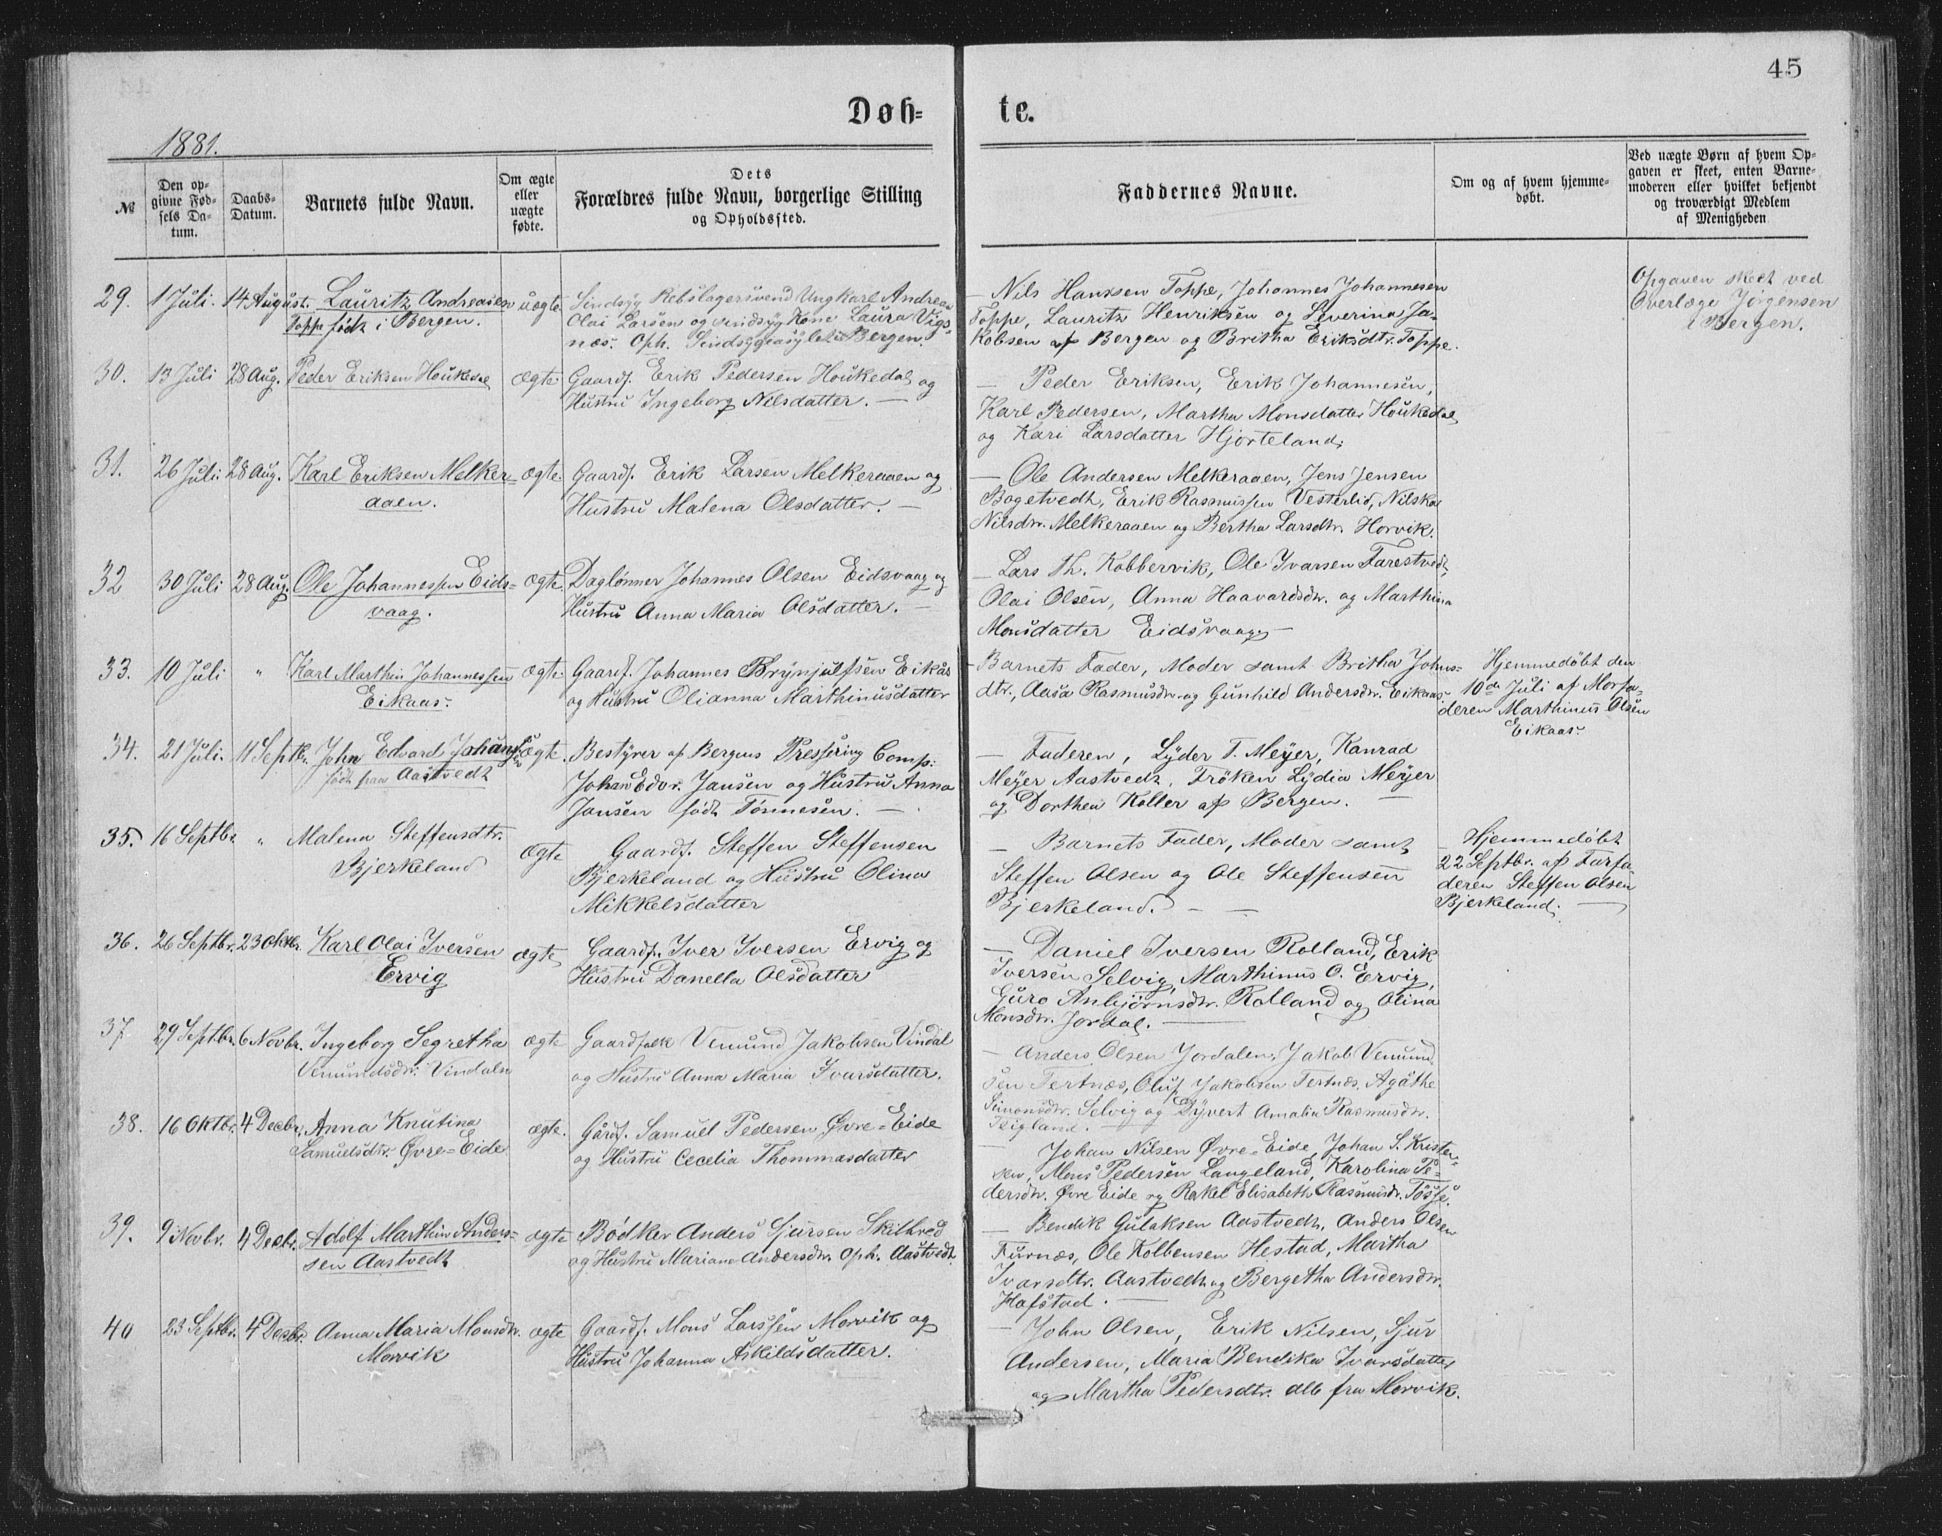 45
Døb-
te.
1881.
№
Den op-
givne Fød-
sels Da-
tum.
Daabs-
Datum.
Barnets fulde Navn.
Om ægte
eller
uægte
fødte.
Dets
Forældres fulde Navn, borgerlige Stilling
og Opholdssted.
Faddernes Navne.
Om og af hvem hjemme-
døbt.
Ved uægte Børn af hvem Op-
gaven er skeet, enten Barne-
moderen eller hvilket bekjendt
og troværdigt Medlem
af Menigheden
29. 1 Juli. 14 August. Lauritz Andreasen
Toppe født i Bergen.
uægte
Sindsyg Rebslagersvend Ungkarl Andreas
Olai Larsen og sindsyg Kone Laura Vigs-
næs. Oph. Sindsygeasylet i Bergen.
Nils Hanssen Toppe, Johannes Johannesen
Toppe, Lauritz Henriksen og Severina Ja-
kobsen af Bergen og Britha Eriksdtr. Toppe.
Opgaven skeet ved
Overlæge Jørgensen
i Bergen.
30. 13 Juli 28 Aug. Peder Eriksen Houkedal
ægte
Gaardf. Erik Pedersen Houkedal og
Hustru Ingeborg Nilsdatter. —
— Peder Eriksen, Erik Johannesen,
Karl Pedersen, Martha Monsdatter Houkedal
og Kari Larsdatter Hjorteland.
31. 26 Juli. 28 Aug. Karl Eriksen Melker-
aaen.
ægte.
Gaardf. Erik Larsen Melkeraaen og
Hustru Malena Olsdatter. —
— Ole Andersen Melkeraaen, Jens Jensen
Bogetvedt, Erik Rasmussen Vesterlid, Nilska
Nilsdtr. Melkeraaen og Bertha Larsdtr. Horvik.
32 30 Juli 28 Aug. Ole Johannessen Eids-
vaag.
ægte.
Daglønner Johannes Olsen Eidsvaag og
Hustru Anna Maria Olsdatter. —
— Lars Th. Kobbervik, Ole Ivarsen Farestvedt,
Olai Olsen, Anna Haavardsdtr. og Marthina
Monsdatter Eidsvaag —
33. 10 Juli " Karl Marthin Johannessen
Eikaas.
ægte
Gaardf. Johannes Brynjulfsen Eikaas
og Hustru Olianna Marthinusdatter
— Barnets Fader, Moder samt Britha Johns-
dtr., Aasa Rasmusdtr. og Gunhild Andersdtr. Eikaas.
Hjemmedøbt den
10de Juli af Morfa-
deren Marthinus Olsen
Eikaas.
34. 21 Juli. 11 Septbr. John Edvard Johansen
født paa Aastvedt
ægte.
Bestyrer af Bergens Pressjening Comp:
Johan Edv. Jansen og Hustru Anna
Jansen født Tønnesen. —
— Faderen, Lyder T. Meyer, Kanrad
Meyer Aastvedt, Frøken Lydia Meyer
og Dorthea Koller af Bergen. —
35. 16 Septbr. " Malena Steffensdtr.
Bjerkeland
ægte
Gaardf. Steffen Steffensen
Bjerkeland og Hustru Olina
Mikkelsdatter
— Barnets Fader, Moder samt
Steffen Olsen og Ole Steffensen
Bjerkeland. — —
Hjemmedøbt
22 Septbr. af Farfa-
deren Steffen Olsen
Bjerkeland. —
36. 26 Septbr. 23 Oktbr. Karl Olai Iversen
Ervig
ægte
Gaardf. Iver Iversen Ervig og
Hustru Danella Olsdatter
— Daniel Iversen Rolland, Erik
Iversen Selvig, Marthinus O. Ervig,
Guro Anbjørnsdtr. Rolland og Olina
Monsdtr. Jordal. —
37. 29 Septbr. 6 Novbr. Ingeborg Segretha
Vemundsdtr. Vindalen
ægte
Gaardfolk Vemund Jakobsen Vindal
og Hustru Anna Maria Ivarsdatter.
— Anders Olsen Jordalen, Jakob Vemund-
sen Tertnæs, Oluf Jakobsen Tertnæs, Agathe
Simonsdtr. Selvig og Dyvert Amalia Rasmusdtr.
Teigland. —
38. 16 Oktbr. 4 Decbr. Anna Knutina
Samuelsdtr. Øvre-Eide
ægte.
Gårdf. Samuel Pedersen Øvre-Eide
og Hustru Cecelia Thommasdatter
— Johan Nilsen Øvre-Eide, Johan S. Krister-
sen, Mons Pedersen Langeland, Karolina Pe-
dersdtr. Øvre Eide og Rakel Elisabeth Rasmusdtr. Tøsse.
39. 9 Novbr. 4 Decbr. Adolf Marthin Anders-
sen Aastvedt
ægte
Bødker Anders Sjursen Skilbred
og Hustru Mariane Andersdtr. Oph. Aastvedt.
— Bendik Gulaksen Aastvedt, Anders Olsen
Furnæs, Ole Kolbensen Hestad, Martha
Ivarsdtr. Aastvedt og Bergetha Andersdtr.
Hafstad. —
40 23 Septbr. 4 Decbr. Anna Maria Monsdtr.
Morvik
ægte
Gaardf. Mons Larssen Morvik og
Hustru Johanna Askildsdatter.
— John Olsen, Erik Nilsen, Sjur
Andersen, Maria Bendika Ivarsdatter
og Martha Pedersdtr. alle fra Morvik.